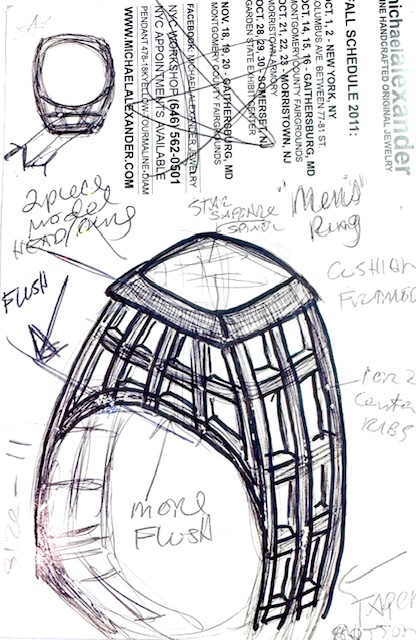 michaelalexander
FINE HANDCRAFTED ORIGINAL JEWELRY
FALL SCHEDULE 2011:
OCT. 1, 2 - NEW YORK, NY
COLUMBUS AVE. BETWEEN 77-81 ST
OCT. 14, 15, 16 - GAITHERSBURG, MD
MONTGOMERY COUNTY FAIRGROUNDS
OCT. 21, 22, 23 - MORRISTOWN, NJ
MORRISTOWN ARMORY
OCT. 28, 29, 30 - SOMERSET, NJ
GARDEN STATE EXHIBIT CENTER
NOV. 18, 19, 20 - GAITHERSBURG, MD
MONTGOMERY COUNTY FAIRGROUNDS
FACEBOOK: MICHAEL ALEXANDER JEWELRY
NYC WORKSHOP (646) 562-0501
NYC APPOINTMENTS AVAILABLE
PENDANT 478-18KYELLOW-TOURMALINE-DIAM
WWW.MICHAELALEXANDER.COM
2 piece
model
HEAD/RING
STAR
"Men's"
Ring
CUSHION
FLUSH
CENTER
RIBS
MORE
FLUSH
SIZE - 11